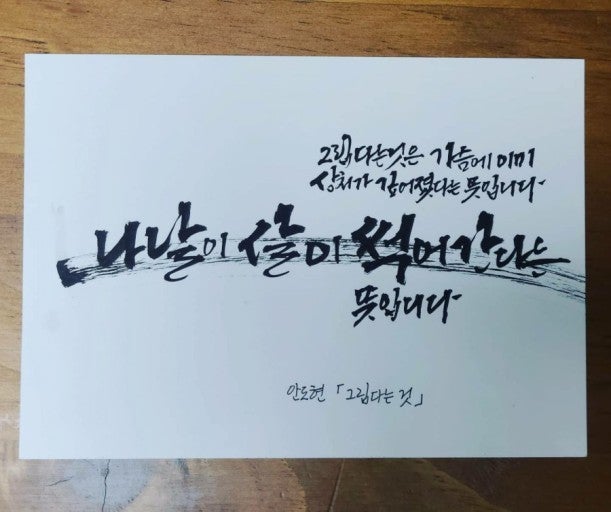 그립다는것은 가슴에 이미
상처가 깊어졌다는 뜻입니다
나날이 살이 썩어간다는
뜻입니다
안도현 「그립다는 것」